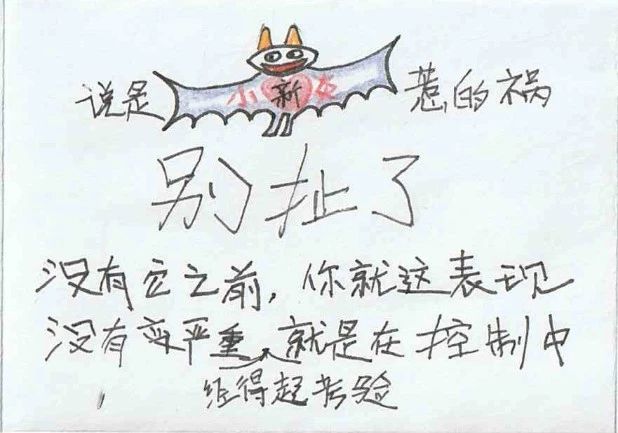 说是 小新口 惹的祸
别扯了
没有它之前，你就这表现
没有变严重、就是在控制中
经得起考验